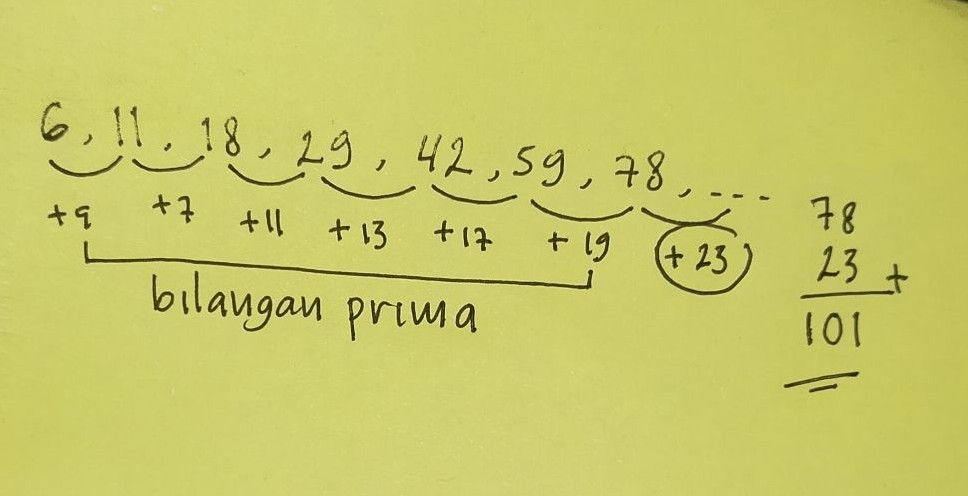 6, 11, 18, 29, 42, 59, 78, ....
+9 +7 +11 +13 +17 +19 +23
bilangan prima
78
23 +
101